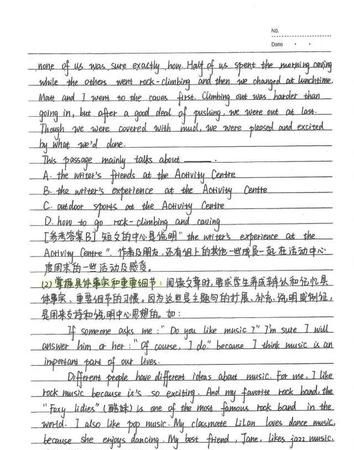 No.
Date
none of us was sure exactly how. Half of us spent the morning caving
while the others went rock-climbing and then we changed at lunchtime.
Matt and I went to the caves first. Climbing out was harder than
going in, but after a good deal of pushing, we were out at last.
Though we were covered with mud, we were pleased and excited
by what we'd done.
This passage mainly talks about ______.
A. the writer's friends at the Activity Centre
B. the writer's experience at the Activity Centre
C. outdoor sports at the Activity Centre
D. how to go rock-climbing and caving
[参考答案B] 短文的中心是说明 "the writer's experience at the
Activity Centre". 作者及朋友, 还有组中的其他一些成员一起在活动中心
度周末的一些活动及感受。
(2) 掌握具体事实和重要细节: 阅读文章时, 要求学生养成辨认和记忆具
体事实、重要细节的习惯, 因为这些是主题句的扩展、补充、说明或例证,
是用来支持和说明中心思想的。如:
If someone asks me: "Do you like music?" I'm sure I will
answer him or her: "Of course, I do" because I think music is an
important part of our lives.
Different people have different ideas about music. For me, I like
rock music because it's so exciting. And my favorite rock band, the
"Foxy Ladies" is one of the most famous rock band in the
world. I also like pop music. My classmate LiLan loves dance music,
because she enjoys dancing. My best friend, Jane, likes jazz music,